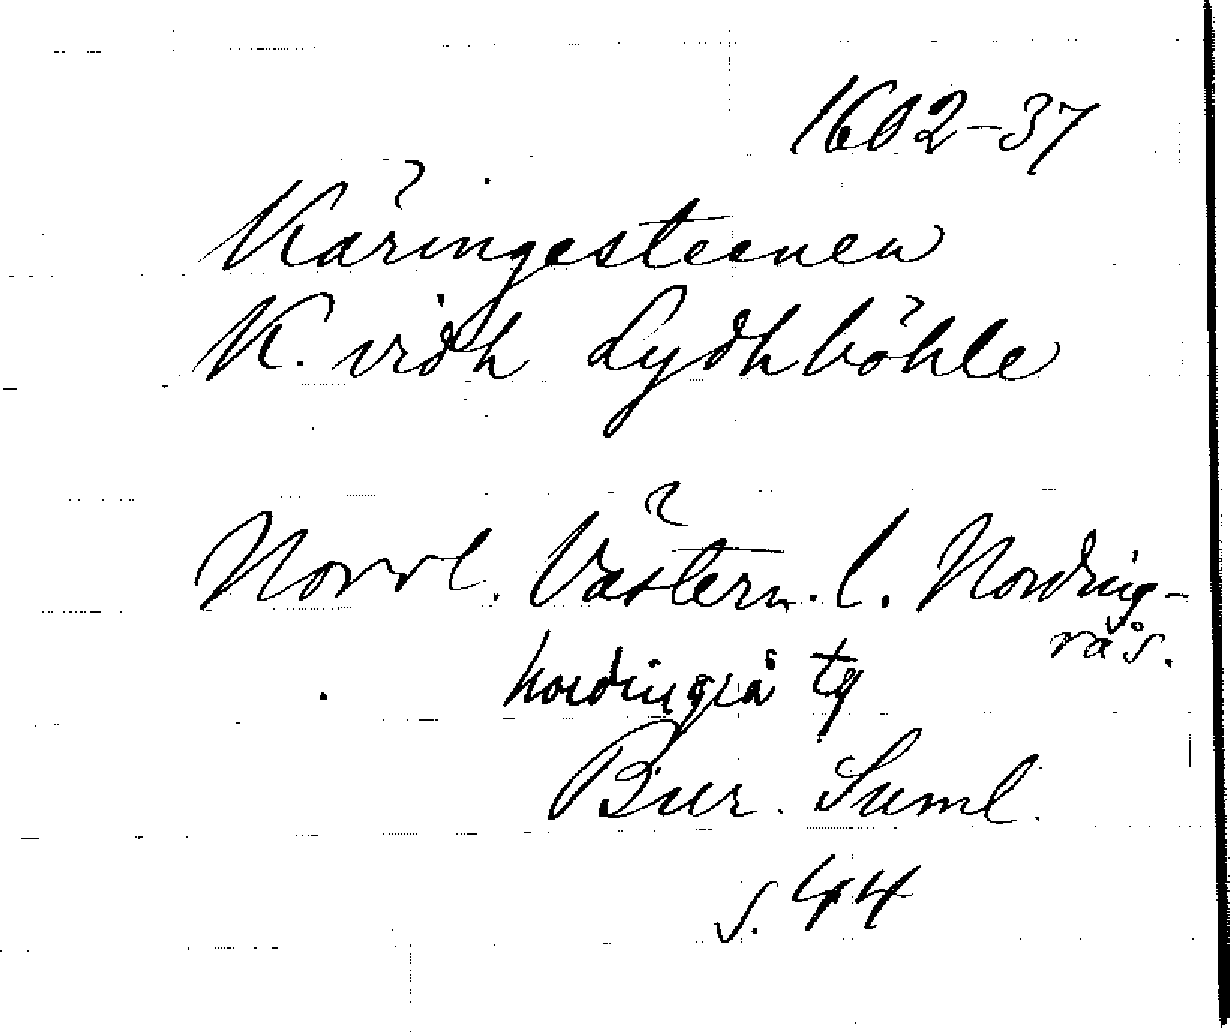 1602-37
Käringesteenen
K. vidh Lydhböhle
Norrl. Västern. l. Nording-
rå s.
Nordingrå tg
Bur. Suml.
s. 44